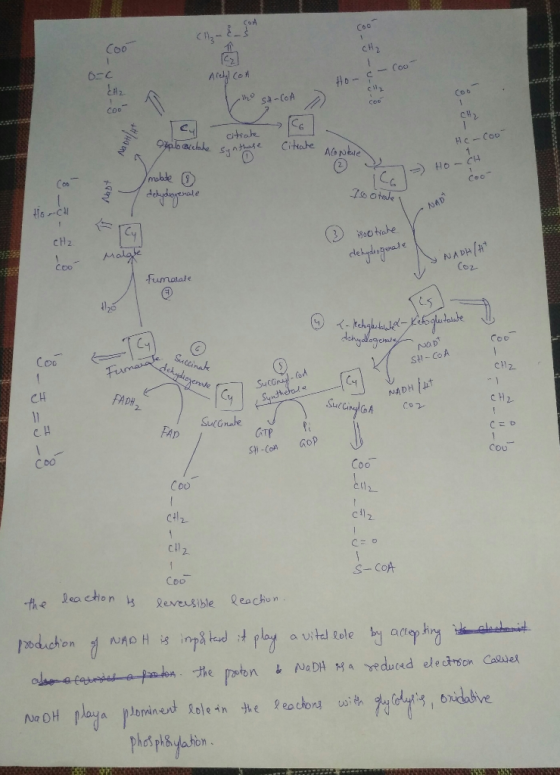 CH3 - C - S
COA
C2
Acetyl COA
COO⁻
O=C
CH2
COO⁻
COO⁻
CH2
HO - C - COO⁻
CH2
COO⁻
H2O
SH-COA
C4
Oxaloacetate
citrate
synthase
1
C6
Citrate
Aconitase
2
C6
Isocitrate
COO⁻
CH2
HC - COO⁻
HO - CH
COO⁻
NADH/H⁺
NAD⁺
malate
dehydrogenase
8
COO⁻
HO - CH
CH2
COO⁻
C4
Malate
3
isocitrate
dehydrogenase
NAD⁺
NADH/H⁺
CO2
Fumarase
7
H2O
C5
α-Ketoglutarate
4
α-Ketoglutarate
dehydrogenase
NAD⁺
SH-COA
NADH/H⁺
CO2
COO⁻
CH2
CH2
C=O
COO⁻
C4
Fumarate
6
Succinate
dehydrogenase
FADH2
FAD
COO⁻
CH
||
CH
COO⁻
C4
Succinate
5
Succinyl-CoA
Synthetase
GTP
SH-COA
Pi
GDP
C4
Succinyl COA
COO⁻
CH2
CH2
COO⁻
COO⁻
CH2
CH2
C=O
S-COA
the reaction is reversible reaction.
production of NADH is impotant it play a vital role by accepting
the proton & NaDH is a reduced electron carrier
NaDH playa prominent role in the reactions with glycolysis, oxidative
phosphorylation.